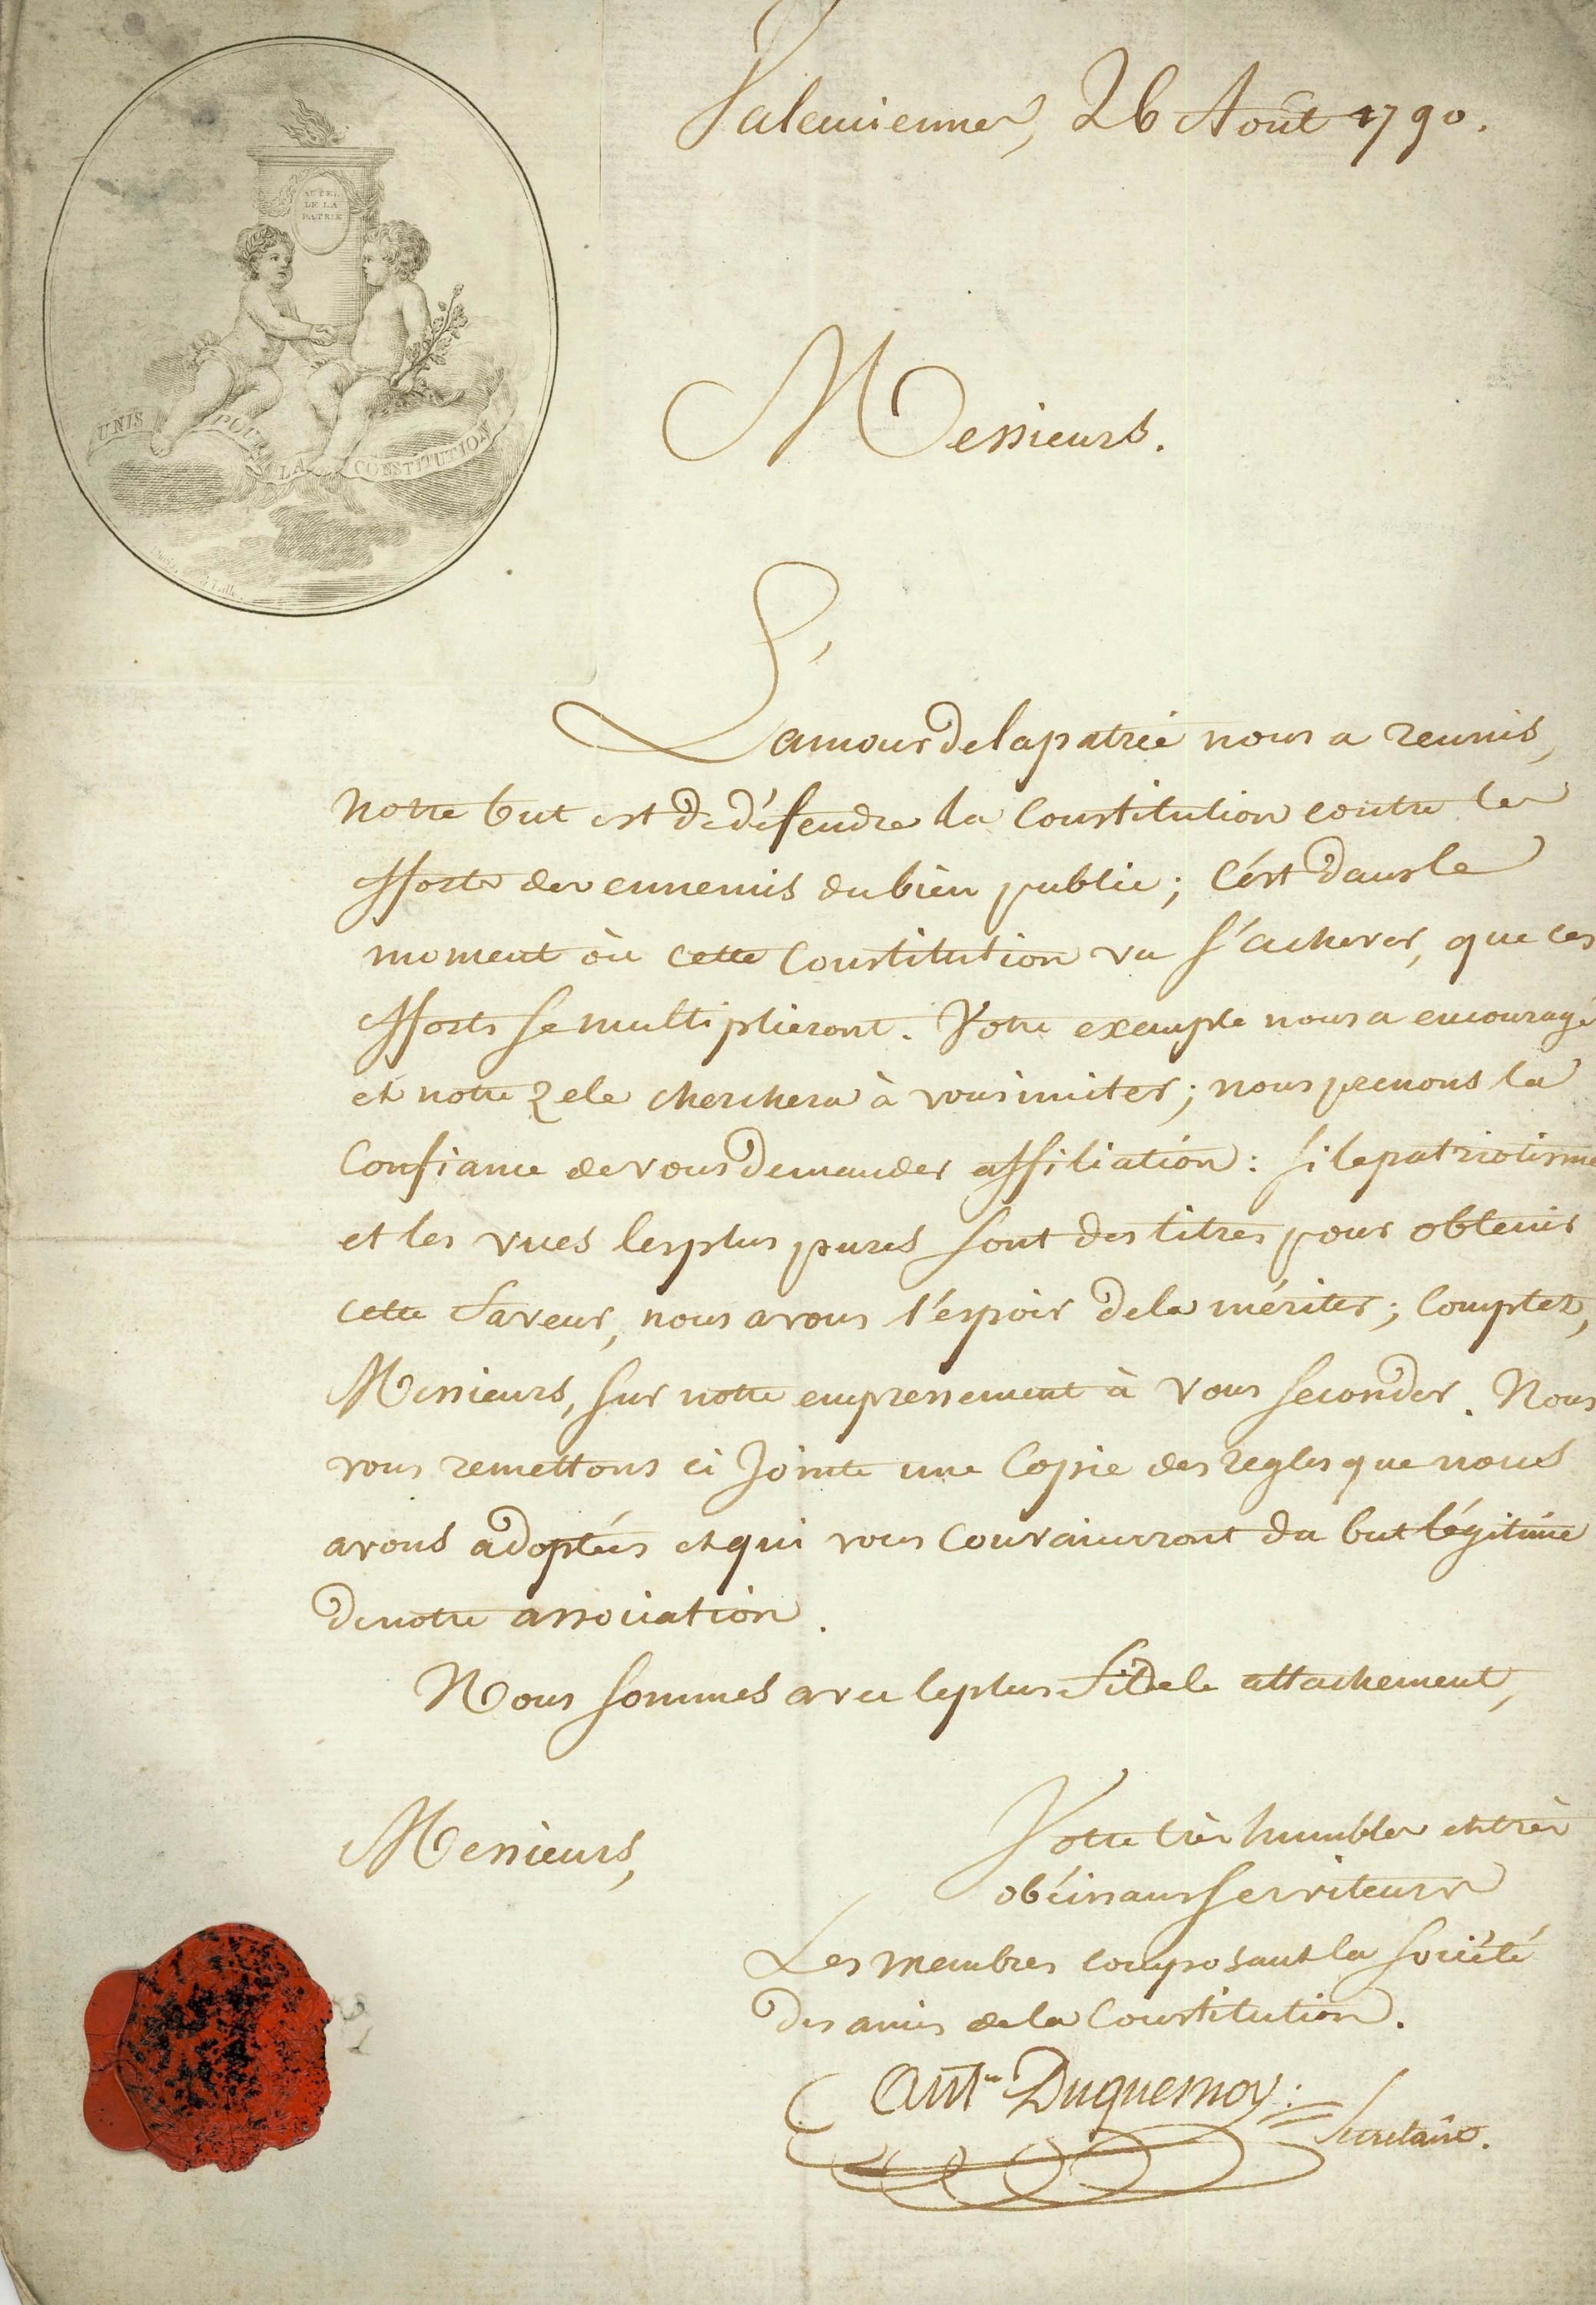 Valenciennes, 26 Août 1790.
AUTEL
DE LA
PATRIE
UNIS POUR LA CONSTITUTION
Messieurs.
L'amour de la patrie nous a reunis,
notre but est de défendre la Constitution contre les
efforts des ennemis du bien public; C'est dans le
moment où cette Constitution va s'achever, que ces
efforts se multiplieront. Votre exemple nous a encouragé
et notre zele cherchera à vous imiter; nous prenons la
Confiance de vous demander affiliation: si le patriotisme
et les vues les plus pures sont des titres pour obtenir
cette faveur, nous avons l'espoir de la mériter; Comptez,
Messieurs, sur notre empressement à vous seconder. Nous
vous remettons ci Jointe une Copie des regles que nous
avons adoptées et qui vous Convaincront du but légitime
de notre association.
Nous sommes avec le plus fidele attachement,
Messieurs,
Votre très humbles et très
obéissans serviteurs
Les membres composant la société
des amis de la Constitution.
Ant.ne Duquesnoy:
Secretaire.